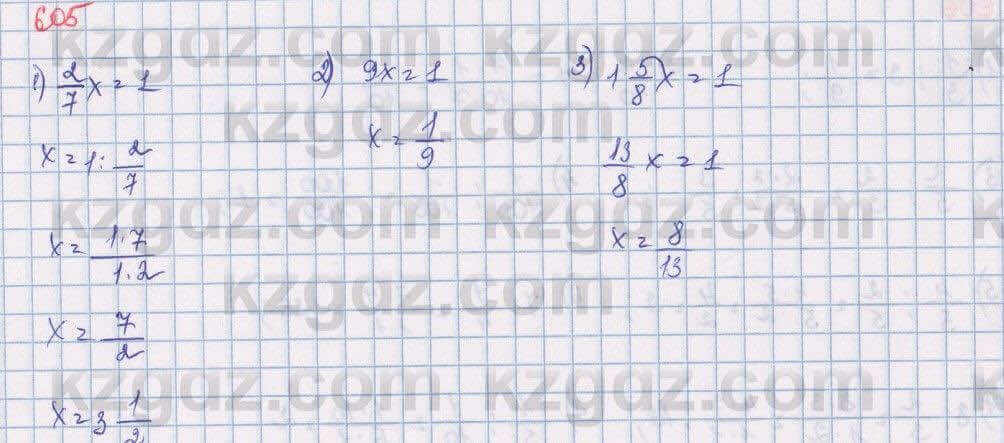 605
1) 2/7 x = 1
x = 1 : 2/7
x = 1·7/1·2
x = 7/2
x = 3 1/2
2) 9x = 1
x = 1/9
3) 1 5/8 x = 1
13/8 x = 1
x = 8/13
kzgdz.com kzgdz.com
kzgdz.com
kzgdz.com kzgdz.com
kzgdz.com
kzgdz.com kzgdz.com